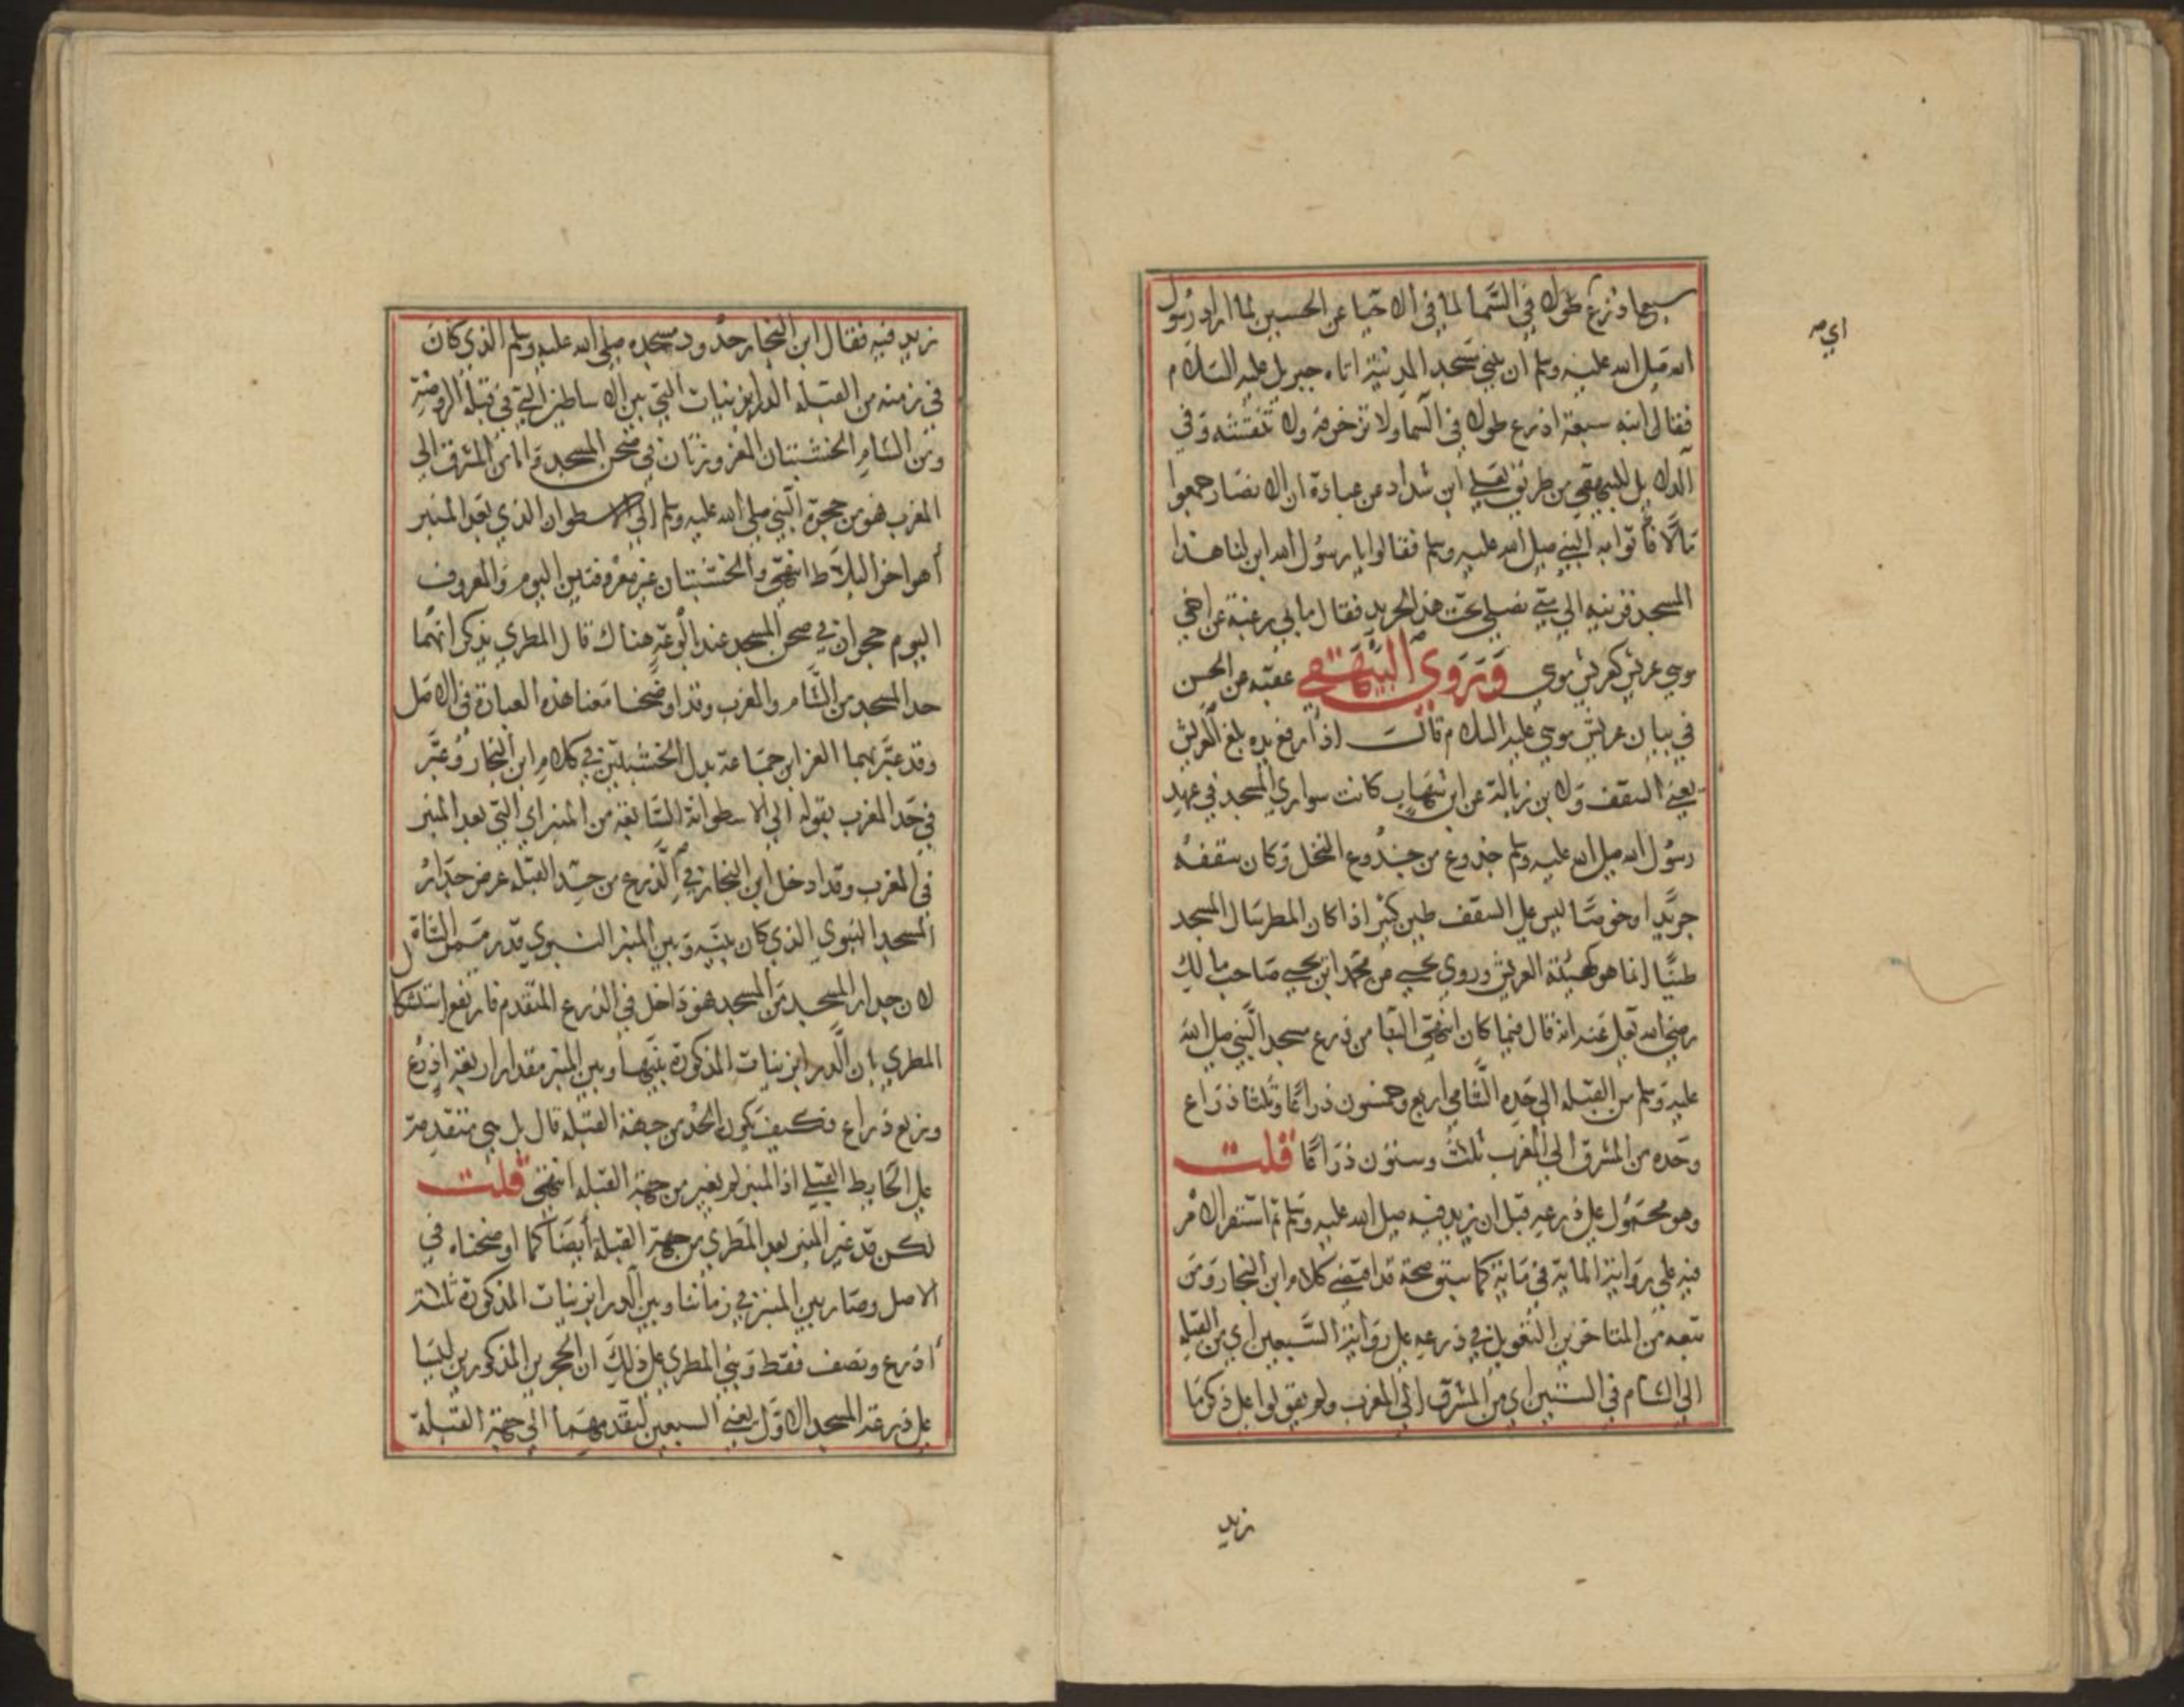 سبعا اذرع طولا في السما لما في الاحيا عن الحسين لما اراد رسول
اي صـ
الله صلى الله عليه وسلم ان يبني مسجد المدينة اتاه جبريل عليه السلام
فقال ابنه سبعة اذرع طولا في السما ولا تزخرفه ولا تنقشه وفي
الدلايل للبيهقي من طريق يعلي ابن شداد عن عبادة ان الانصار جمعوا
مالا فاتوا به النبي صلى الله عليه وسلم فقالوا يا رسول الله ابن لنا هذا
المسجد وزينه الي متي نصلي تحت هذا الجريد فقال ما بي رغبة عن اخي
موسي عريش كعريش موسي وروي البيهقي عقبه عن الحسن
في بيان عريش موسي عليه السلام قالت اذا رفع يده بلغ العريش
يعني السقف ولابن زبالة عن ابن شهاب كانت سواري المسجد في عهد
رسول الله صلى الله عليه وسلم جذوع من جذوع النخل وكان سقفه
جريدا وخوصا ليس على السقف طين كثير اذا كان المطر سال المسجد
طينا انما هو كهيئة العريش وروي يحيي من محمد ابن يحيي صاحب مالك
رضي الله تعلى عنه انه قال فيما كان انتهي الينا من ذرع مسجد النبي صلى الله
عليه وسلم من القبلة الي حده الشامي اربع وخمسون ذراعا وثلثا ذراع
وحده من المشرق الي المغرب ثلث وستون ذراعا قلت
وهو محمول على ذرعه قبل ان يزيد فيه صلى الله عليه وسلم ثم استقر الامر
فيه على رواية الماية في ماية كما سنوضحه قد اقتضي كلام ابن النجار ومن
تبعه من المتاخرين التعويل في ذرعه على رواية السبعين اي من القبلة
الي الشام في الستين اي من المشرق الي المغرب ولم يقولوا على ذكر ما
زيد
زيد فيه فقال ابن النجار حدود مسجده صلى الله عليه وسلم الذي كان
في زمنه من القبلة الدرابزينات التي بين الاساطين التي في قبلة الروضة
ومن الشام الخشبتان المغروزتان في صحن المسجد واما من المشرق الي
المغرب فهو من حجرة النبي صلى الله عليه وسلم الي الاسطوان الذي بعد المنبر
اهو اخر البلاط انتهي والخشبتان غير معروفتين اليوم والمعروف
اليوم حجران في صحن المسجد عند بالوعة هناك قال المطري يذكر انهما
حد المسجد من الشام والمغرب وقد اوضحنا معنا هذه العبارة في الاصل
وقد عبر بهما العز ابن جماعة بدل الخشبتين في كلام ابن النجار وعبر
في حد المغرب بقوله الي الاسطوانة السابقة من المنبر اي التي بعد المنبر
في المغرب وقد ادخل ابن النجار في الذرع من حد القبلة عرض جدار
المسجد النبوي الذي كان بينه وبين المنبر النبوي قدر ممر الشاة
لان جدار المسجد من المسجد فهو داخل في الذرع المتقدم فارتفع استشكال
المطري بان الدرابزينات المذكورة بينها وبين المنبر مقدار اربعة اذرع
وربع ذراع فكيف يكون الحد من جهة القبلة قال بل هي متقدمة
على الحايط القبلي اذ المنبر لم يغير من جهة القبلة انتهي قلت
لكن قد غير المنبر بعد المطري من جهة القبلة ايضا كما اوضحناه في
الاصل وصار بين المنبر في زماننا وبين الدرابزينات المذكورة ثلثة
اذرع ونصف فقط وبني المطري على ذلك ان الحجرين المذكورين ليسا
على ذرعة المسجد الاول يعني السبعين لتقدمهما الي جهة القبلة